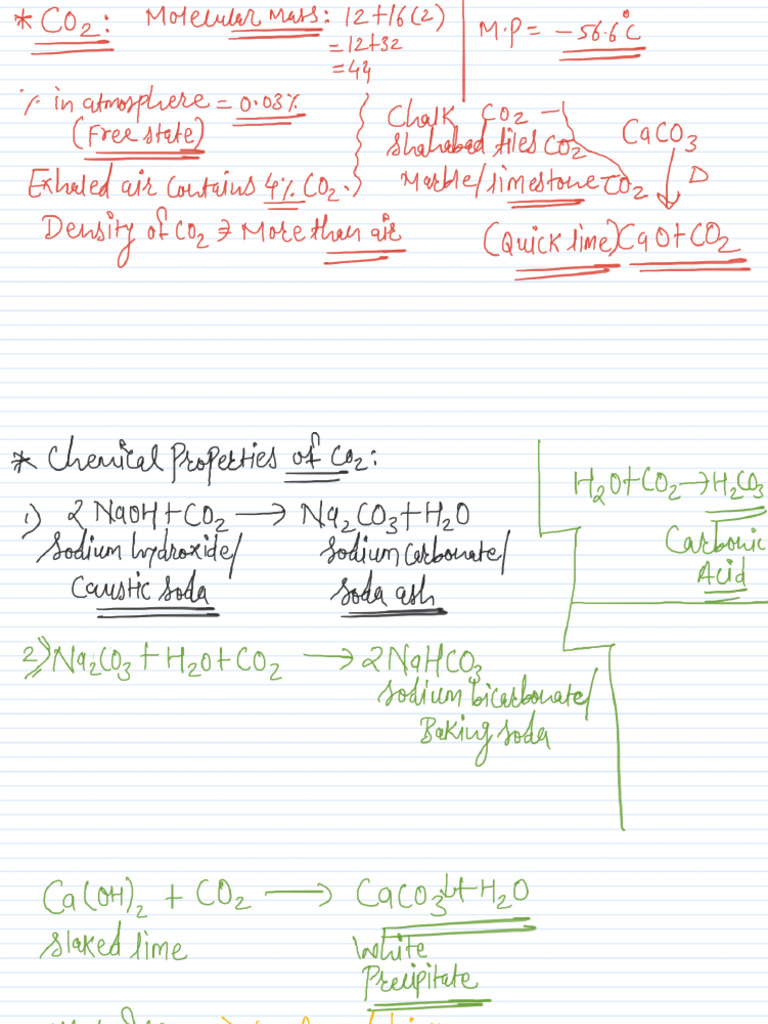 * CO₂: Molecular Mass: 12+16(2)
= 12+32
= 44
M.P = -56.6°C
% in atmosphere = 0.03%
(Free state)
Exhaled air contains 4% CO₂.
Density of CO₂ → More than air
Chalk CO₂
Shahabad tiles CO₂
Marble/limestone CO₂
CaCO₃
↓ Δ
(Quick lime) CaO+CO₂
* Chemical Properties of CO₂:
1) 2NaOH+CO₂ → Na₂CO₃+H₂O
Sodium hydroxide/ Sodium carbonate/
Caustic soda soda ash
H₂O+CO₂→H₂CO₃
Carbonic
Acid
2) Na₂CO₃+H₂O+CO₂ → 2NaHCO₃
Sodium bicarbonate/
Baking soda
Ca(OH)₂ + CO₂ → CaCO₃↓+H₂O
Slaked lime White
Precipitate